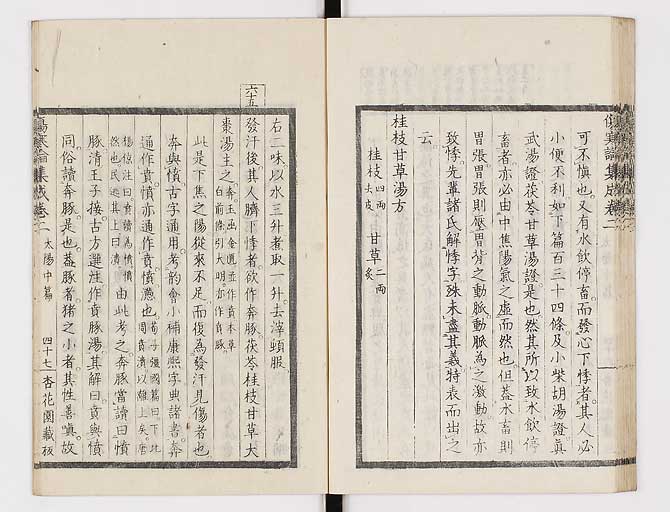 可不愼也。又有水飲停畜。而發心下悸者。其人必
小便不利。如下篇百三十四條及小柴胡湯證眞
武湯證茯苓甘草湯證是也。然其所以致水飲停
畜者。亦必由中焦陽氣之虛而然也。但蓋水畜則
胃張。胃張則壓胃背之動脈。動脈爲之激動。故亦
致悸。先輩諸氏解悸字。殊未盡其義。特表而出之
云
桂枝甘草湯方
桂枝四兩去皮 甘草二兩炙
傷寒論集成卷二
右二味以水三升煮取一升。去滓頓服
六十五
發汗後其人臍下悸者。欲作奔豚。茯苓桂枝甘草大
棗湯主之
此是下焦之陽。從來不足。而復爲發汗見傷者也
奔與憤古字通用。考韵會小補康熙字典諸書。奔
通作賁。憤亦通作賁。憤懣也。
由此考之。奔豚當讀曰憤
豚清王子接。古方選注作賁豚湯。其解曰。賁與憤
同。俗讀奔豚。是也。蓋豚者猪之小者。其性善嗔。故
傷寒論集成卷二 太陽中篇 四十七 杏花園藏板